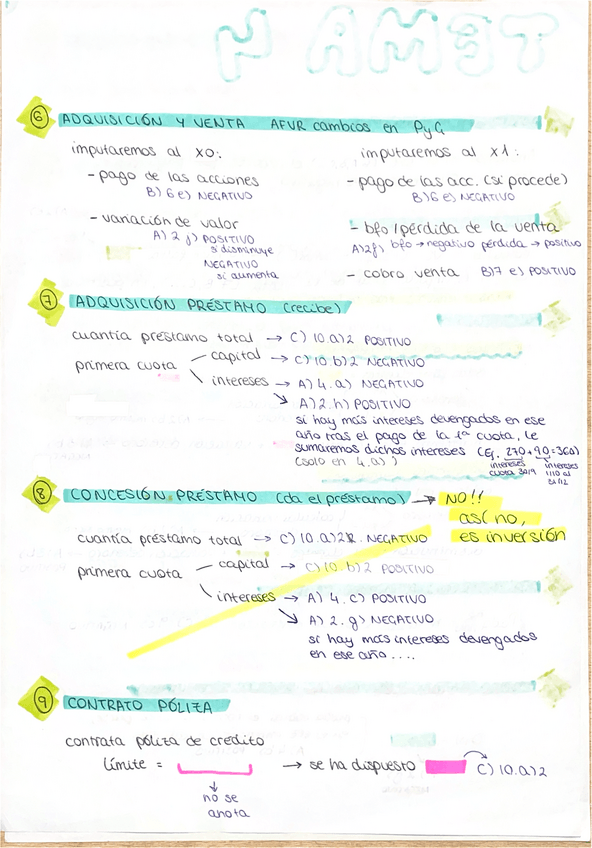 6 ADQUISICIÓN Y VENTA AFVR cambios en PyG
imputaremos al x0:
- pago de las acciones
B) 6 e) NEGATIVO
- variación de valor
A) 2 j) POSITIVO
si disminuye
NEGATIVO
si aumenta
imputaremos al x1:
- pago de las acc. (si procede)
B) 6 e) NEGATIVO
- bfo/pérdida de la venta
A)2f) bfo → negativo pérdida → positivo
- cobro venta B)7 e) POSITIVO
7 ADQUISICIÓN PRÉSTAMO (recibe)
cuantía préstamo total → C) 10.a) 2 POSITIVO
primera cuota capital → C) 10.b) 2 NEGATIVO
intereses → A) 4. a) NEGATIVO
↘ A) 2. h) POSITIVO
si hay más intereses devengados en ese
año tras el pago de la 1ª cuota, le
sumaremos dichos intereses (Ej. 270+90=360)
(solo en 4.a) )
intereses
cuota 30/9
intereses
1/10 al
31/12
8 CONCESIÓN PRÉSTAMO (da el préstamo) → NO!!
así no,
es inversión
cuantía préstamo total → C) 10.a) 2 NEGATIVO
primera cuota capital → C) 10.b) 2 POSITIVO
intereses → A) 4. c) POSITIVO
↘ A) 2. g) NEGATIVO
si hay más intereses devengados
en ese año ....
9 CONTRATO PÓLIZA
contrata póliza de crédito
límite = → se ha dispuesto C) 10.a)2
↓
no se
anota